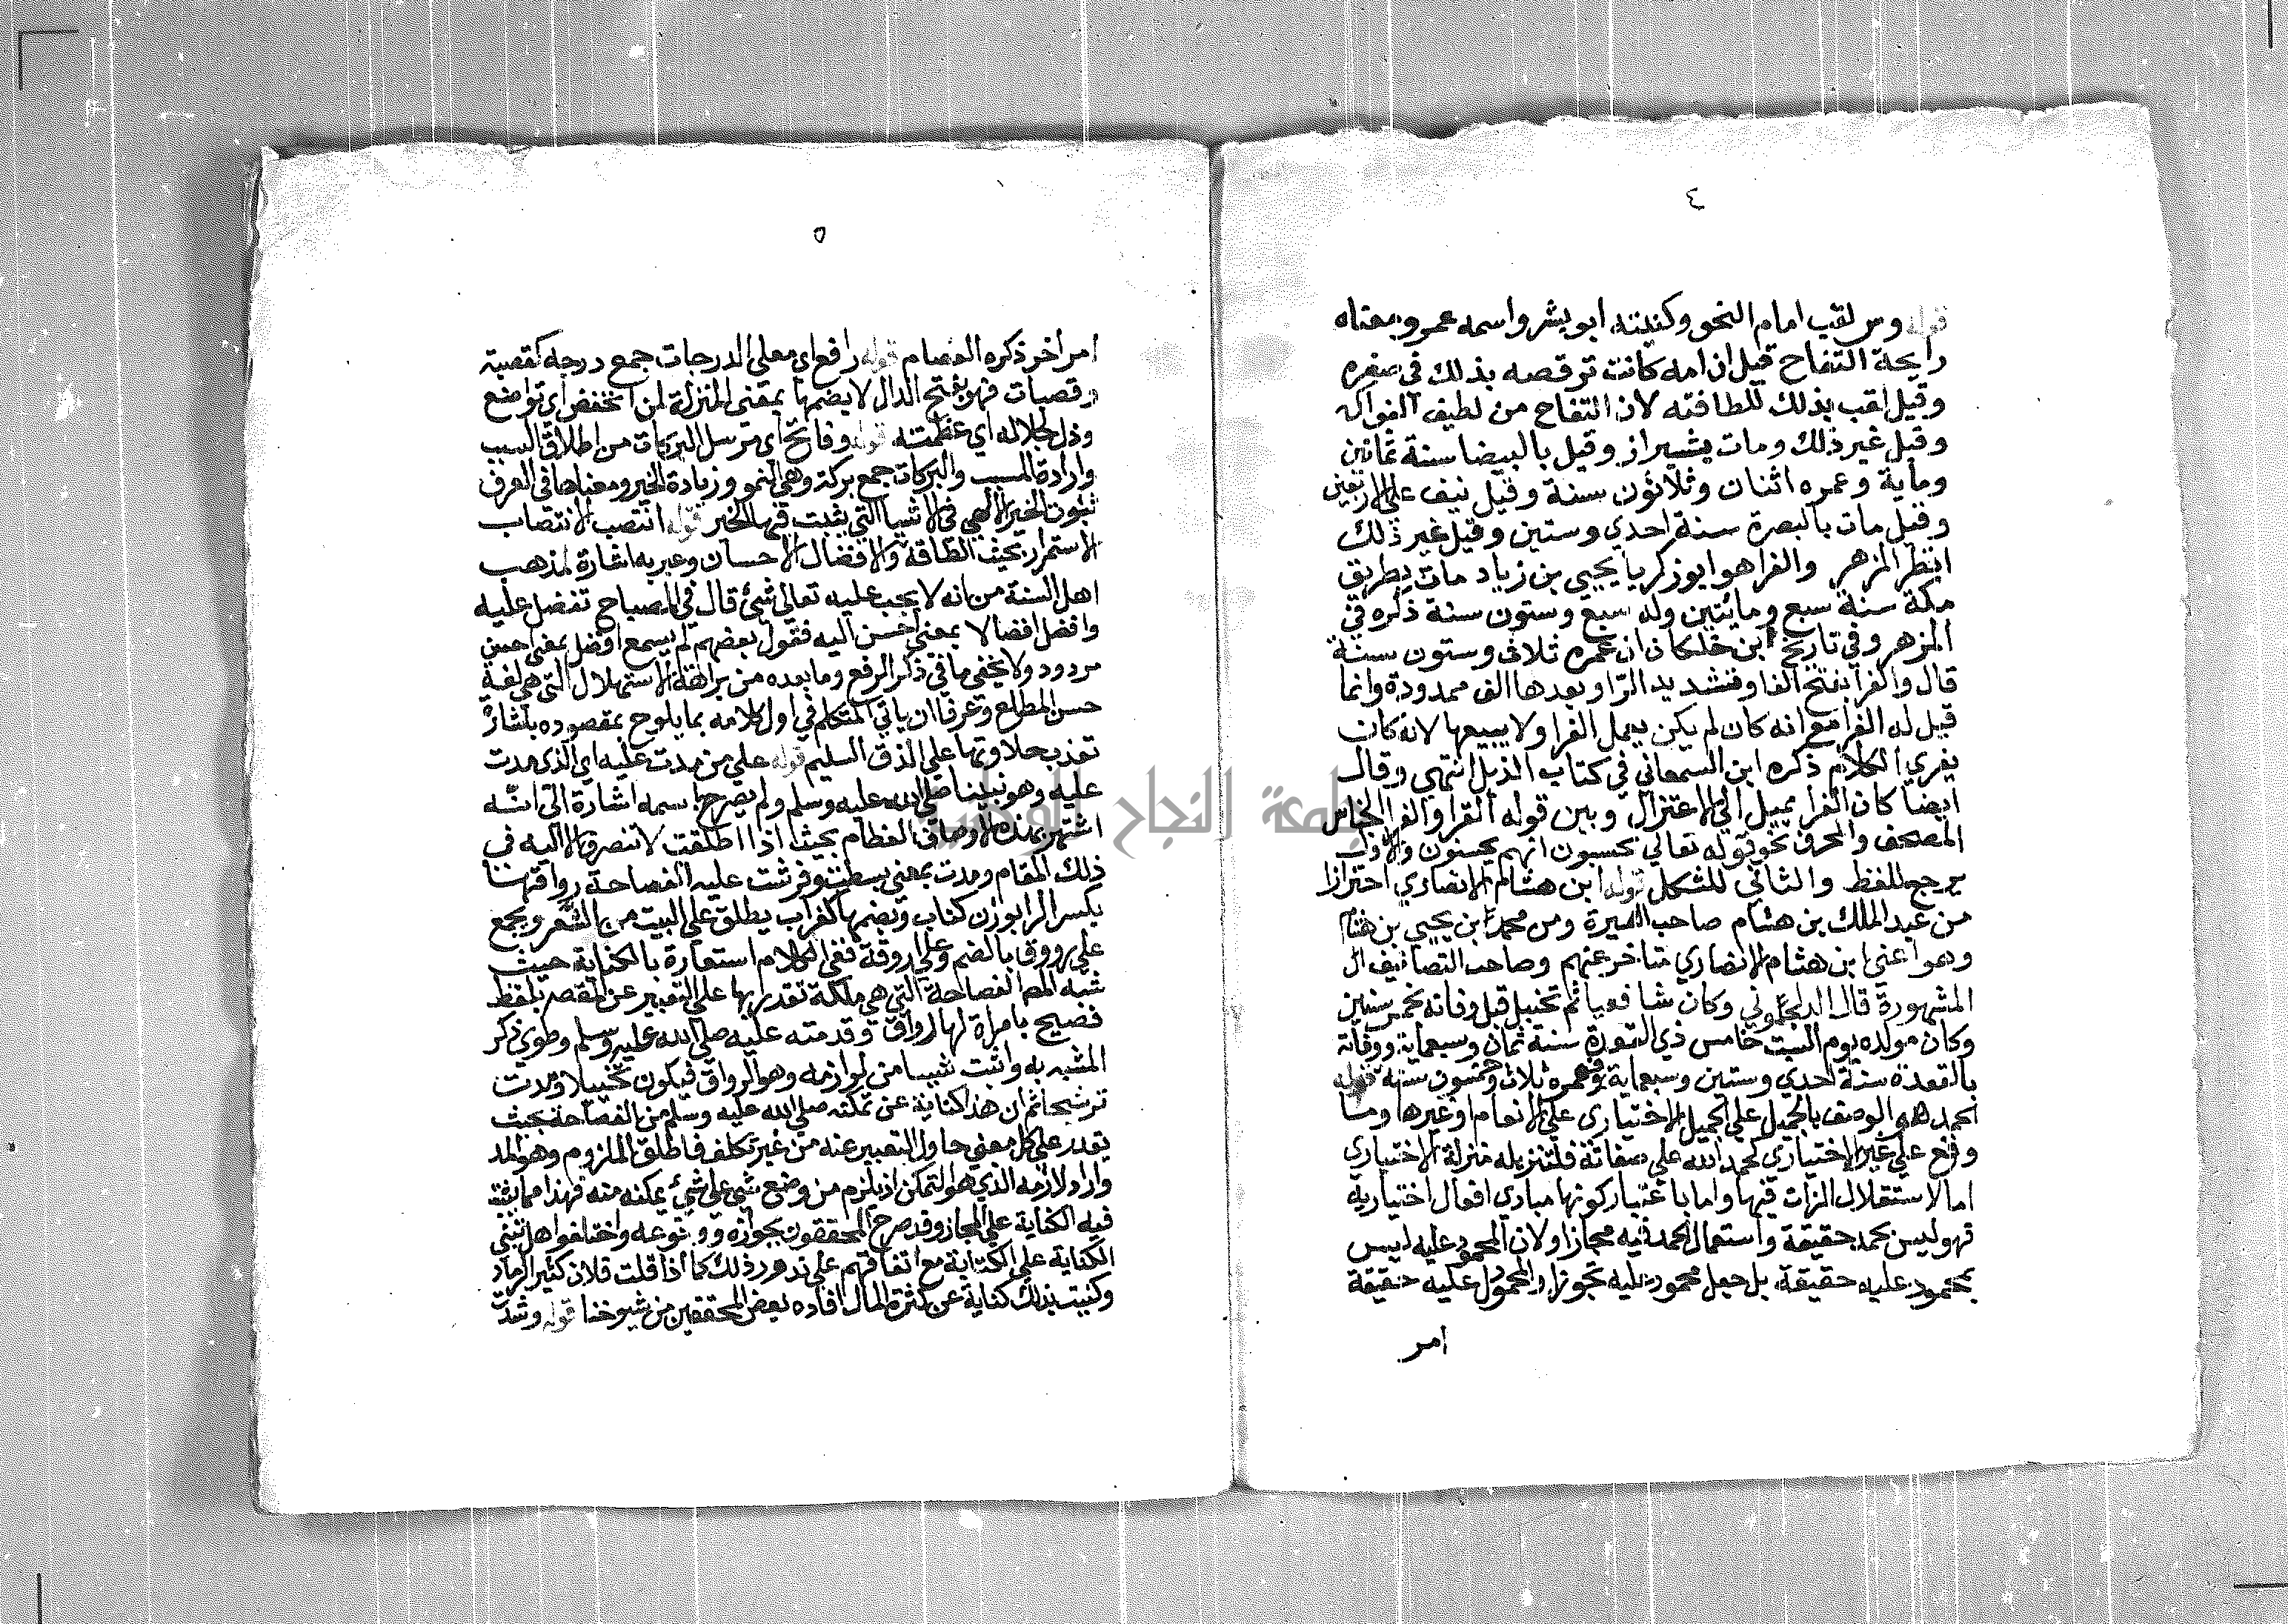 ٤
قوله وس لقب امام النحو وكنيته ابو بشر واسمه عمرو ومعناه
رايحة التفاح قيل ان امه كانت ترقصه بذلك في صغره
وقيل لقب بذلك للطافته لان التفاح من لطيف الفواكه
وقيل غير ذلك ومات بشيراز وقيل بالبيضا سنة ثمانين
وماية وعمره اثنان وثلاثون سنة وقيل نيف على الاربعين
وقيل مات بالبصرة سنة احدي وستين وقيل غير ذلك
انظر المزهر والفرا هو ابو زكريا يحيي بن زياد مات بطريق
مكة سنة سبع ومائتين وله سبع وستون سنة ذكره في
المزهر وفي تاريخ ابن خلكان ان عمره ثلاث وستون سنة
قال والفرا بفتح الفا وتشديد الرا وبعدها الف ممدودة وانما
قيل له الفرا مع انه كان لم يكن يعمل الفرا ولا يبيعها لانه كان
يفري الكلام ذكره ابن السمعاني في كتاب الذيل انتهي وقال
ايضا كان الفرا يميل الي الاعتزال وبين قوله الفرا والفرا الجناس
المصحف والمحرف نحو قوله تعالي يحسبون انهم يحسنون والاول
يرجع للفظ والثاني للشكل قوله ابن هشام الانصاري احترازا
من عبد الملك بن هشام صاحب السيرة ومن محمد ابن يحيي بن هشام
وهو اعني ابن هشام الانصاري متاخر عنهم وصاحب التصانيف ال
المشهورة قال الدلجموني وكان شافعيا ثم تحنبل قبل وفاته بخمس سنين
وكان مولده يوم السبت خامس ذي القعدة سنة ثمان وسبعماية ووفاته
بالقعدة سنة احدي وستين وسبعماية فعمره ثلاث وخمسون سنة قوله
الحمد هو الوصف بالجميل علي الجميل الاختياري علي الانعام او غيرها وما
وقع علي غير الاختياري كحمد الله علي صفاته فلتنزيله منزلة الاختياري
اما لاستقلال الذات فيها واما باعتبار كونها مبادي افعال اختيارية
فهو ليس بحمد حقيقة واستعمال الحمد فيه مجازا ولان المحمود عليه ليس
بمحمود عليه حقيقة بل جعل محمود عليه تجوزا والمحمول عليه حقيقة
امر
٥
امر اخر ذكره العصام قوله رافع اي معلي الدرجات جمع درجه كقصبة
وقصبات فهو بفتح الدال لا بضمها بمعني المنزلة لمن انخفض اي تواضع
وذل لجلاله اي عظمته قوله وفاتح اي مرسل البركات من اطلاق السبب
وارادة المسبب والبركات جمع بركة وهي النمو وزيادة الخير ومعناها في العرف
ثبوت الخير الالهي في الاشيا التي يثبت فيها الخير قوله انتصب الانتصاب
الاستمرار بحيث الطاقة والافضال الاحسان وعبر به اشارة لمذهب
اهل السنة من انه لا يجب عليه تعالي شئ قال في المصباح تفضل عليه
وافضل افضالا بمعني احسن اليه فقول بعضهم لم يسمع افضل بمعني احسن
مردود ولا يخفي ما في ذكر الرفع وما بعده من براعة الاستهلال التي هي لغة
حسن المطلع وعرفا ان ياتي المتكلم في اول كلامه بما يلوح بمقصوده باشارة
تعذب حلاوتها علي الذوق السليم قوله علي من مدت عليه اي الذي مدت
عليه وهو نبينا صلي الله عليه وسلم ولم يصرح باسمه اشارة الي انه
اشتهر بهذه الاوصاف العظام بحيث اذا اطلقت لا تنصرف الا اليه في
ذلك المقام ومدت بمعني بسطت وفرشت عليه الفصاحة رواقها
بكسر الرا بوزن كتاب وبضمها كغراب يطلق علي البيت من الشعر ويجمع
علي رووق بالضم وعلي اروقة ففي الكلام استعارة بالكناية حيث
شبه الفصاحة التي هي ملكة تقدر بها علي التعبير عن المقصد بلفظ
فصيح بامراة لها رواق وقد مته عليه صلي الله عليه وسلم وطوي ذكر
المشبه به واثبت شيئا من لوازمه وهو الرواق فيكون تخييلا ومدت
ترشيحا ثم ان هذا كناية عن تمكنه صلي الله عليه وسلم من الفصاحة بحيث
يقدر علي كل معني حاول التعبير عنه من غير تكلف فاطلق الملزوم وهو المد
واراد لازمه الذي هو التمكن اذ يلزم من وضع شئ علي شئ يمكنه منه فهذا مما بنيت
فيه الكناية علي المجاز وقد صرح المحققون بجوازه ووقوعه واختلفوا هل تبني
الكناية علي الكناية مع اتفاقهم علي ندور ذلك كما اذا قلت فلان كثير الرماد
وكنيت بذلك كناية عن كثرة المال افاده بعض المحققين من شيوخنا قوله وشدت
جامعة النجاح الوطنية